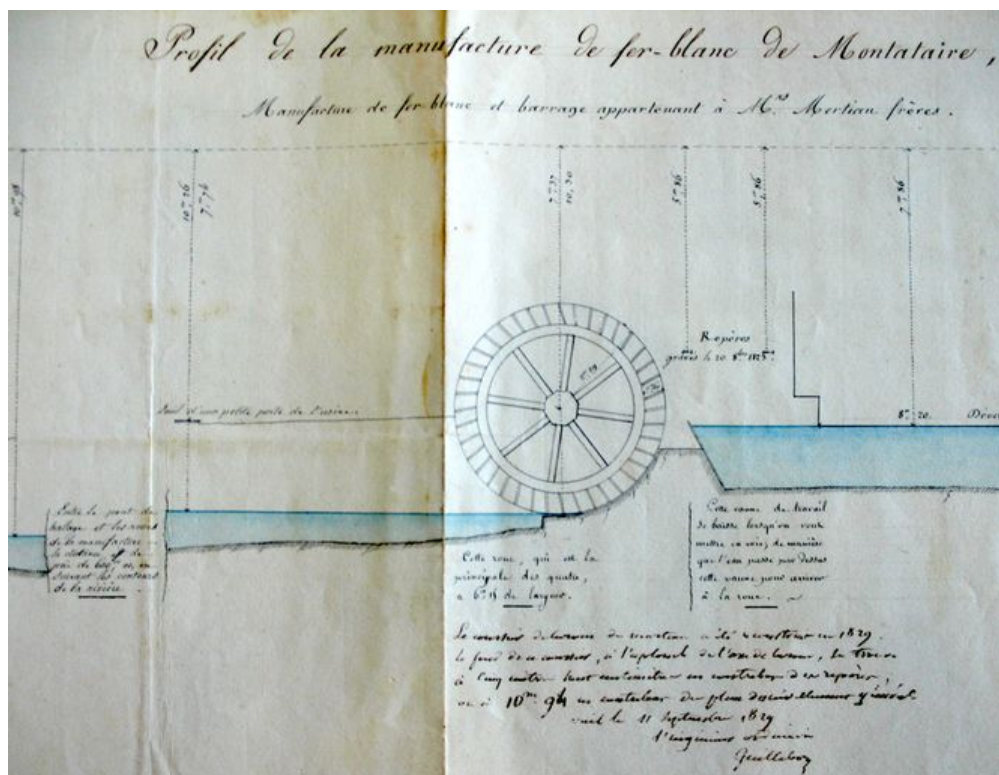 Profil de la manufacture de fer-blanc de Montataire,
Manufacture de fer-blanc et barrage appartenant à M.rs Mertian frères.
10.m 26
7.m 74
7.m 37
10,30
5.m 86
5.m 86
7.m 86
Repères
gravés le 20 8.bre 1825.
Seuil d'une petite porte de l'usine.
8.m 20.
Entre le pont de
halage et les roues
de la manufacture
la distance est de
près de en
suivant les contours
de la rivière.
Cette roue, qui est la
principale des quatre,
a de largeur.
Cette vanne de travail
se baisse lorsqu'on veut
mettre en voie, de manière
que l'eau passe par dessus
cette vanne pour arriver
à la roue.
Le coursier de la roue du marteau a été reconstruit en 1829.
le fond de ce coursier, à l'aplomb de l'axe de la roue, se trouve
à cinq mètres huit centimètres en contrebas des repères,
ou à 10.m 94 en contrebas du plan de nivellement général.
le 11 Septembre 1829
l'ingénieur ordinaire